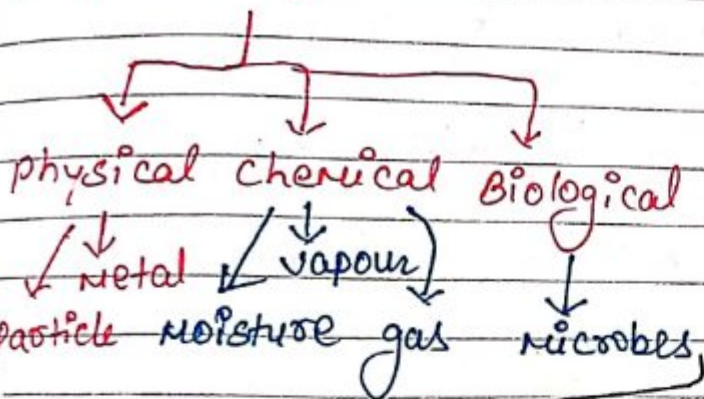 Physical Chemical Biological
Metal Vapour
Particle Moisture gas Microbes